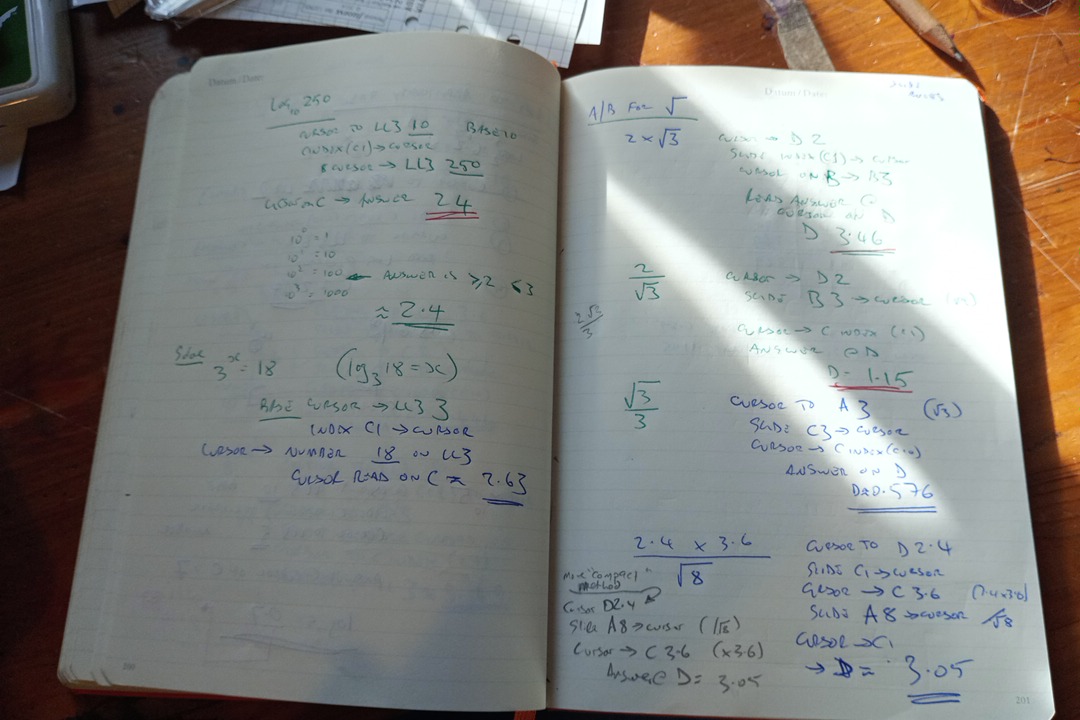 Datum/Date
log10 250
CURSOR TO LL3 10 BASE 10
INDEX (C1) → CURSOR
CURSOR → LL3 250
CURSOR ON C → ANSWER 2.4
10^0 = 1
10^1 = 10
10^2 = 100 ← ANSWER IS ≥2 <3
10^3 = 1000
≈ 2.4
3^x = 18 (log3 18 = x)
BASE CURSOR → LL3 3
INDEX C1 → CURSOR
CURSOR → NUMBER 18 ON LL3
CURSOR READ ON C ≈ 2.63
200
Datum/Date
A/B FOR √
2 × √3
CURSOR → D2
SLIDE INDEX (C1) → CURSOR
CURSOR ON B → B3
READ ANSWER @
CURSOR ON D
D 3.46
2/√3
CURSOR → D2
SLIDE B3 → CURSOR (√3)
CURSOR → C INDEX (C1)
ANSWER @ D
D = 1.15
2√3/3
√3/3
CURSOR TO A3 (√3)
SLIDE C3 → CURSOR
CURSOR → C INDEX (C10)
ANSWER ON D
D≈0.576
2.4 × 3.6 / √8
CURSOR TO D2.4
SLIDE C1 → CURSOR
CURSOR → C3.6 (2.4×3.6)
SLIDE A8 → CURSOR /√8
CURSOR → C1
→ D = 3.05
More "compact" method
Cursor D2.4
Slide A8 → cursor (/√8)
Cursor → C3.6 (×3.6)
Answer @ D = 3.05
201